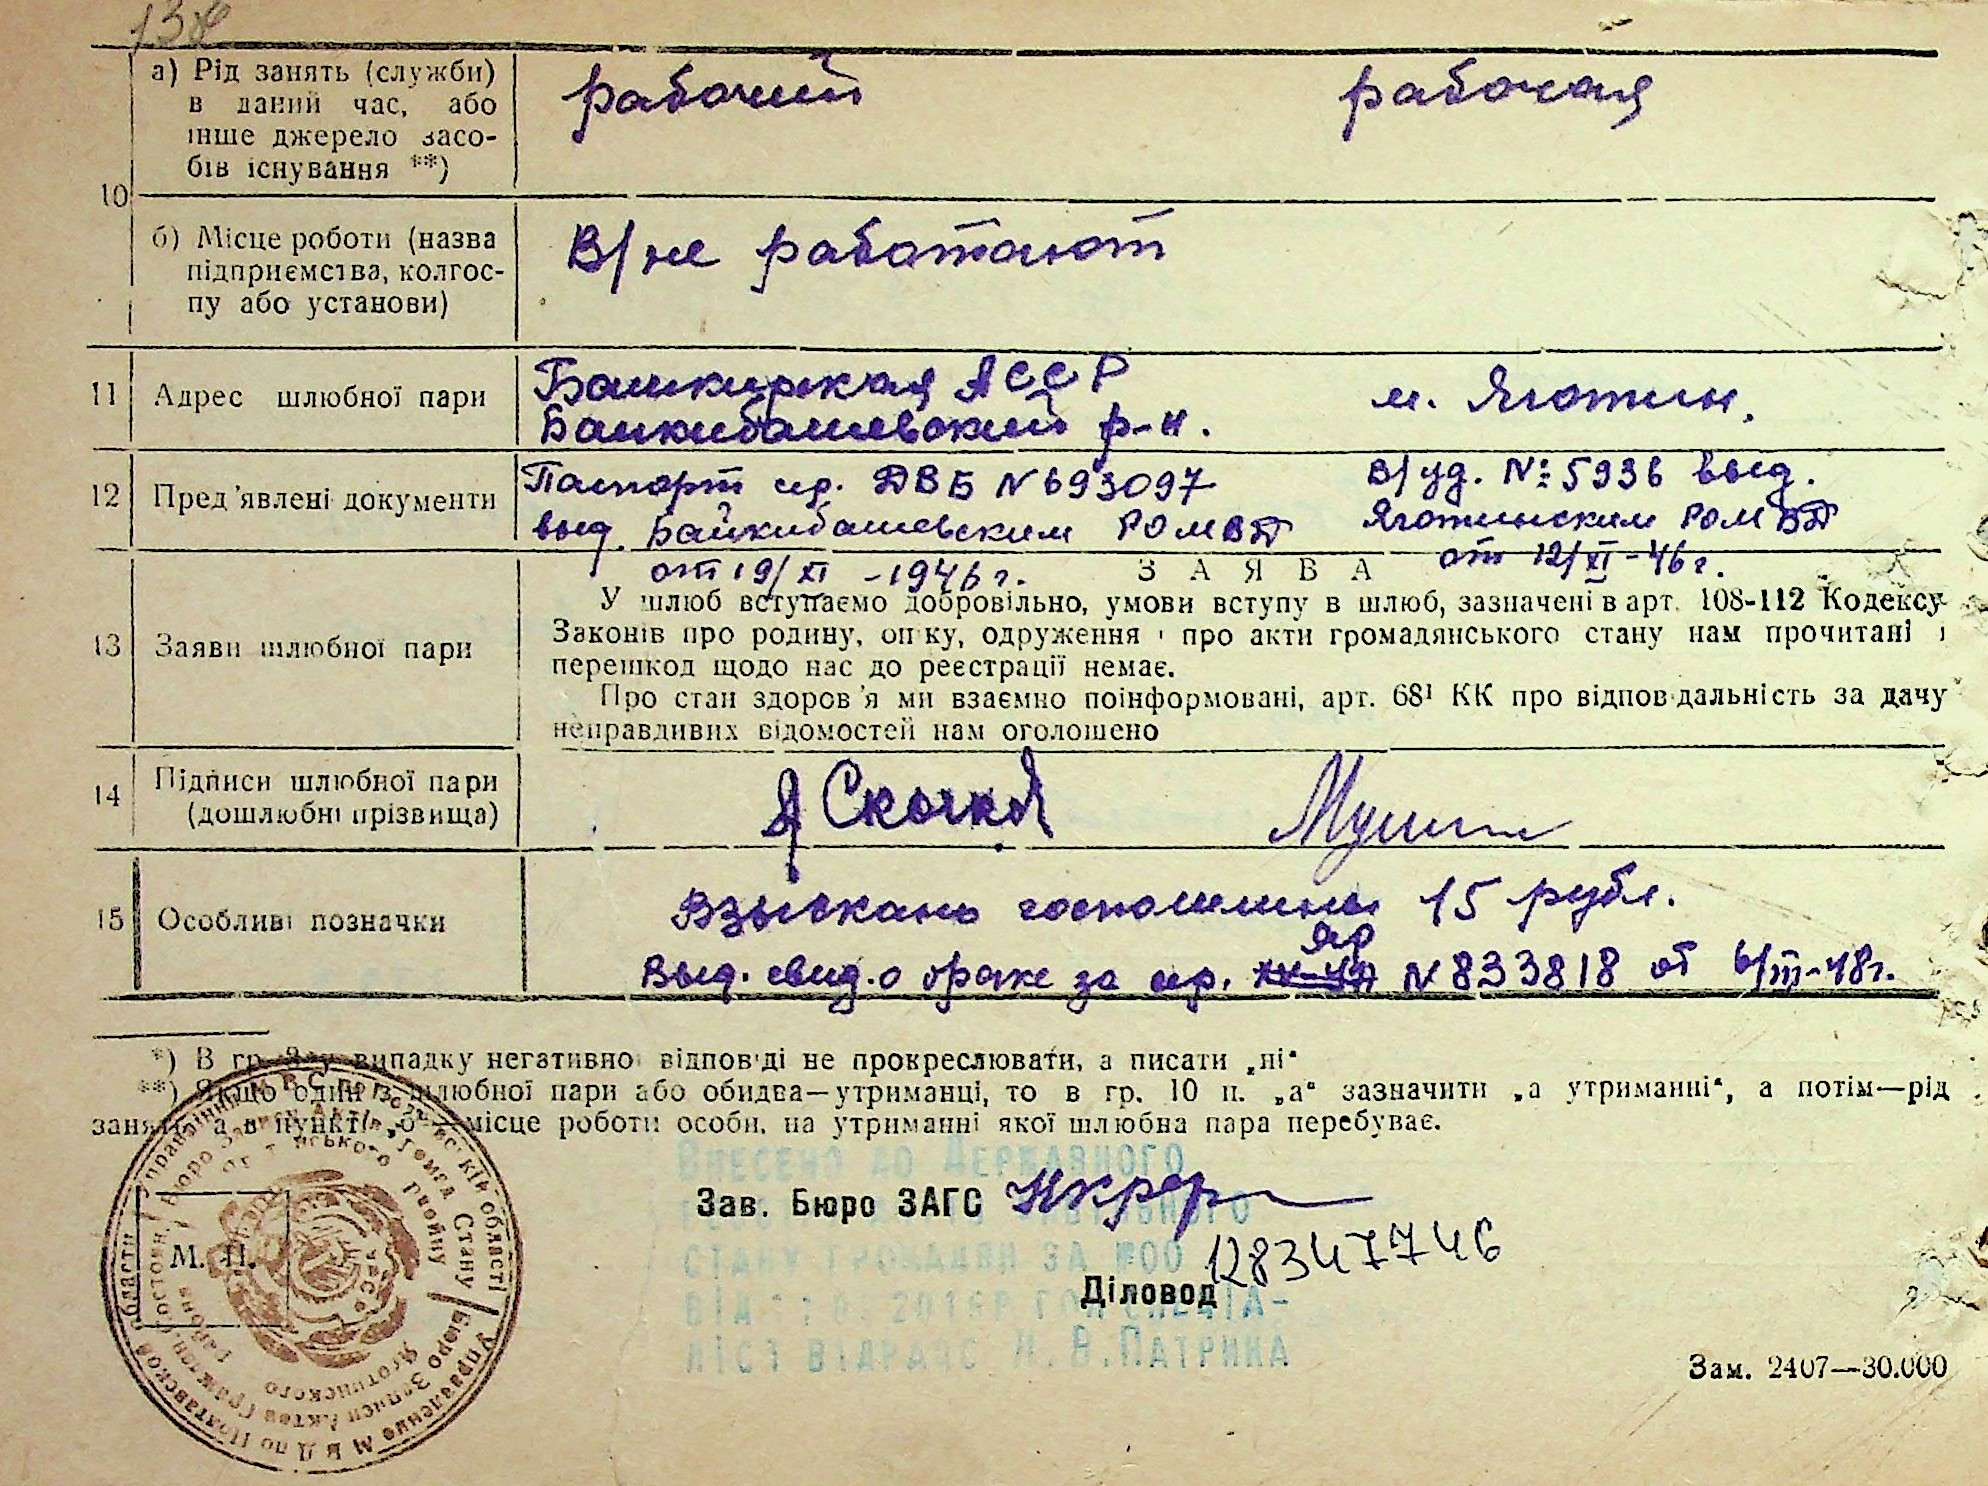 а) Рід занять (служби)
в даний час, або
інше джерело засо-
бів існування **)
рабочий
рабочая
10
б) Місце роботи (назва
підприємства, колгос-
пу або установи)
В/не работают
11
Адрес шлюбної пари
Башкирская АССР
Байкибашевский р-н.
м. Яготин.
12
Пред'явлені документи
Паспорт сер. ДВБ N 693097
выд. Байкибашевским РОМВД
от 19/XI - 1946 г.
В/уд. №: 5936 выд.
Яготинским РОМВД
от 12/XI - 46 г.
13
Заяви шлюбної пари
ЗАЯВА
У шлюб вступаємо добровільно, умови вступу в шлюб, зазначені в арт. 108-112 Кодексу
Законів про родину, опіку, одруження і про акти громадянського стану нам прочитані і
перешкод щодо нас до реєстрації немає.
Про стан здоров'я ми взаємно поінформовані, арт. 68¹ КК про відповідальність за дачу
неправдивих відомостей нам оголошено
14
Підписи шлюбної пари
(дошлюбні прізвища)
15
Особливі позначки
Взыскано госпошлины 15 рубл.
ЯР
Выд. свид. о браке за сер. N 833818 от 6/III-48г.
*) В гр. випадку негативної відповіді не прокреслювати, а писати „ні“
**) Якщо один з шлюбної пари або обидва—утриманці, то в гр. 10 п. „а“ зазначити „а утриманні“, а потім—рід
занять, а в пункті „б“—місце роботи особи, на утриманні якої шлюбна пара перебуває.
Внесено до Державного
Зав. Бюро ЗАГС
стану громадян за №00
128347746
Діловод
ліст відрацс Н.В.Патрика
М. П.
Зам. 2407—30.000